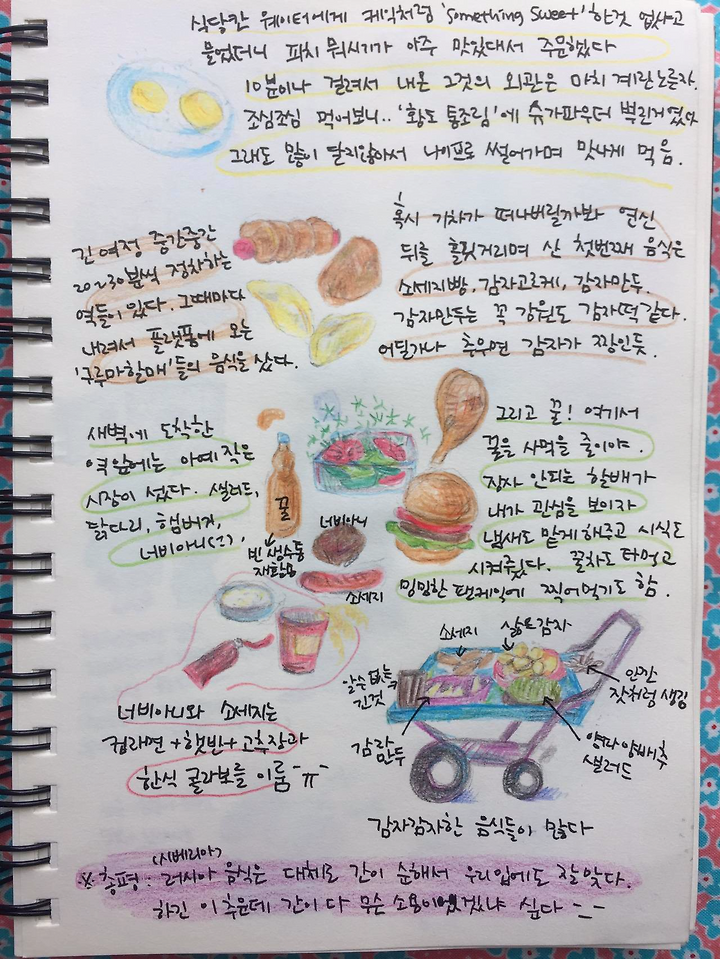 식당칸 웨이터에게 케익처럼 'something sweet' 한것 없냐고
물었더니 피치 뭐시기가 아주 맛있대서 주문했다
10분이나 걸려서 내온 그것의 외관은 마치 계란 노른자.
조심조심 먹어보니.. '황도 통조림'에 슈가파우더 뿌린거였다
그래도 많이 달지않아서 나이프로 썰어가며 맛나게 먹음.
긴 여정 중간중간
20~30분씩 정차하는
역들이 있다. 그때마다
내려서 플랫폼에 오는
'구루마할매'들의 음식을 샀다.
혹시 기차가 떠나버릴까봐 연신
뒤를 흘깃거리며 산 첫번째 음식은
소세지빵, 감자고로케, 감자만두.
감자만두는 꼭 강원도 감자떡 같다.
어딜가나 추우면 감자가 짱인듯.
새벽에 도착한
역 앞에는 아예 작은
시장이 섰다. 샐러드,
닭다리, 햄버거,
너비아니(?),
꿀
빈 생수통
재활용
너비아니
소세지
그리고 꿀! 여기서
꿀을 사먹을 줄이야.
장사 안되는 할배가
내가 관심을 보이자
냄새도 맡게 해주고 시식도
시켜줬다. 꿀차도 타먹고
밍밍한 팬케익에 찍어먹기도 함.
너비아니와 소세지는
컵라면 + 햇반 + 고추장과
한식 콜라보를 이룸 ㅠ
소세지
삶은감자
알수 없는
긴것
감자
만두
인간
잣처럼 생김
양파 양배추
샐러드
감자감자한 음식들이 많다
(시베리아?)
※ 총평 : 러시아 음식은 대체로 간이 순해서 우리입에도 잘 맞다.
하긴 이 추운데 간이 다 무슨 소용이었겠냐 싶다 -_-